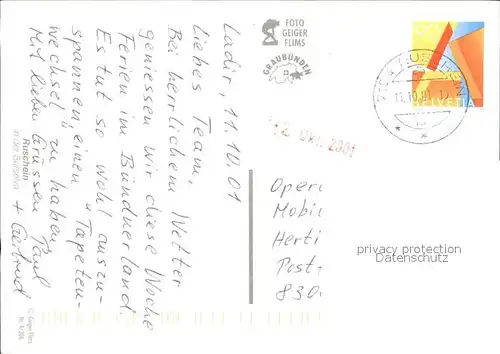 Ladir, 11.10.01
Liebes Team,
Bei herrlichem Wetter
geniessen wir diese Woche
Ferien im Bündnerland.
Es tut so wohl auszu-
spannen einen "Tapeten-
wechsel" zu haben.
Mit lieben Grüssen Paul
+ Gertrud
Ruschein
in der Surselva
© Geiger Flims
FOTO
GEIGER
FLIMS
GRAUBÜNDEN
RUSCHEIN
11.10.01
HELVETIA
12. OKT. 2001
Opera
Mobi
Herti
Post
830
privacy protection
Datenschutz